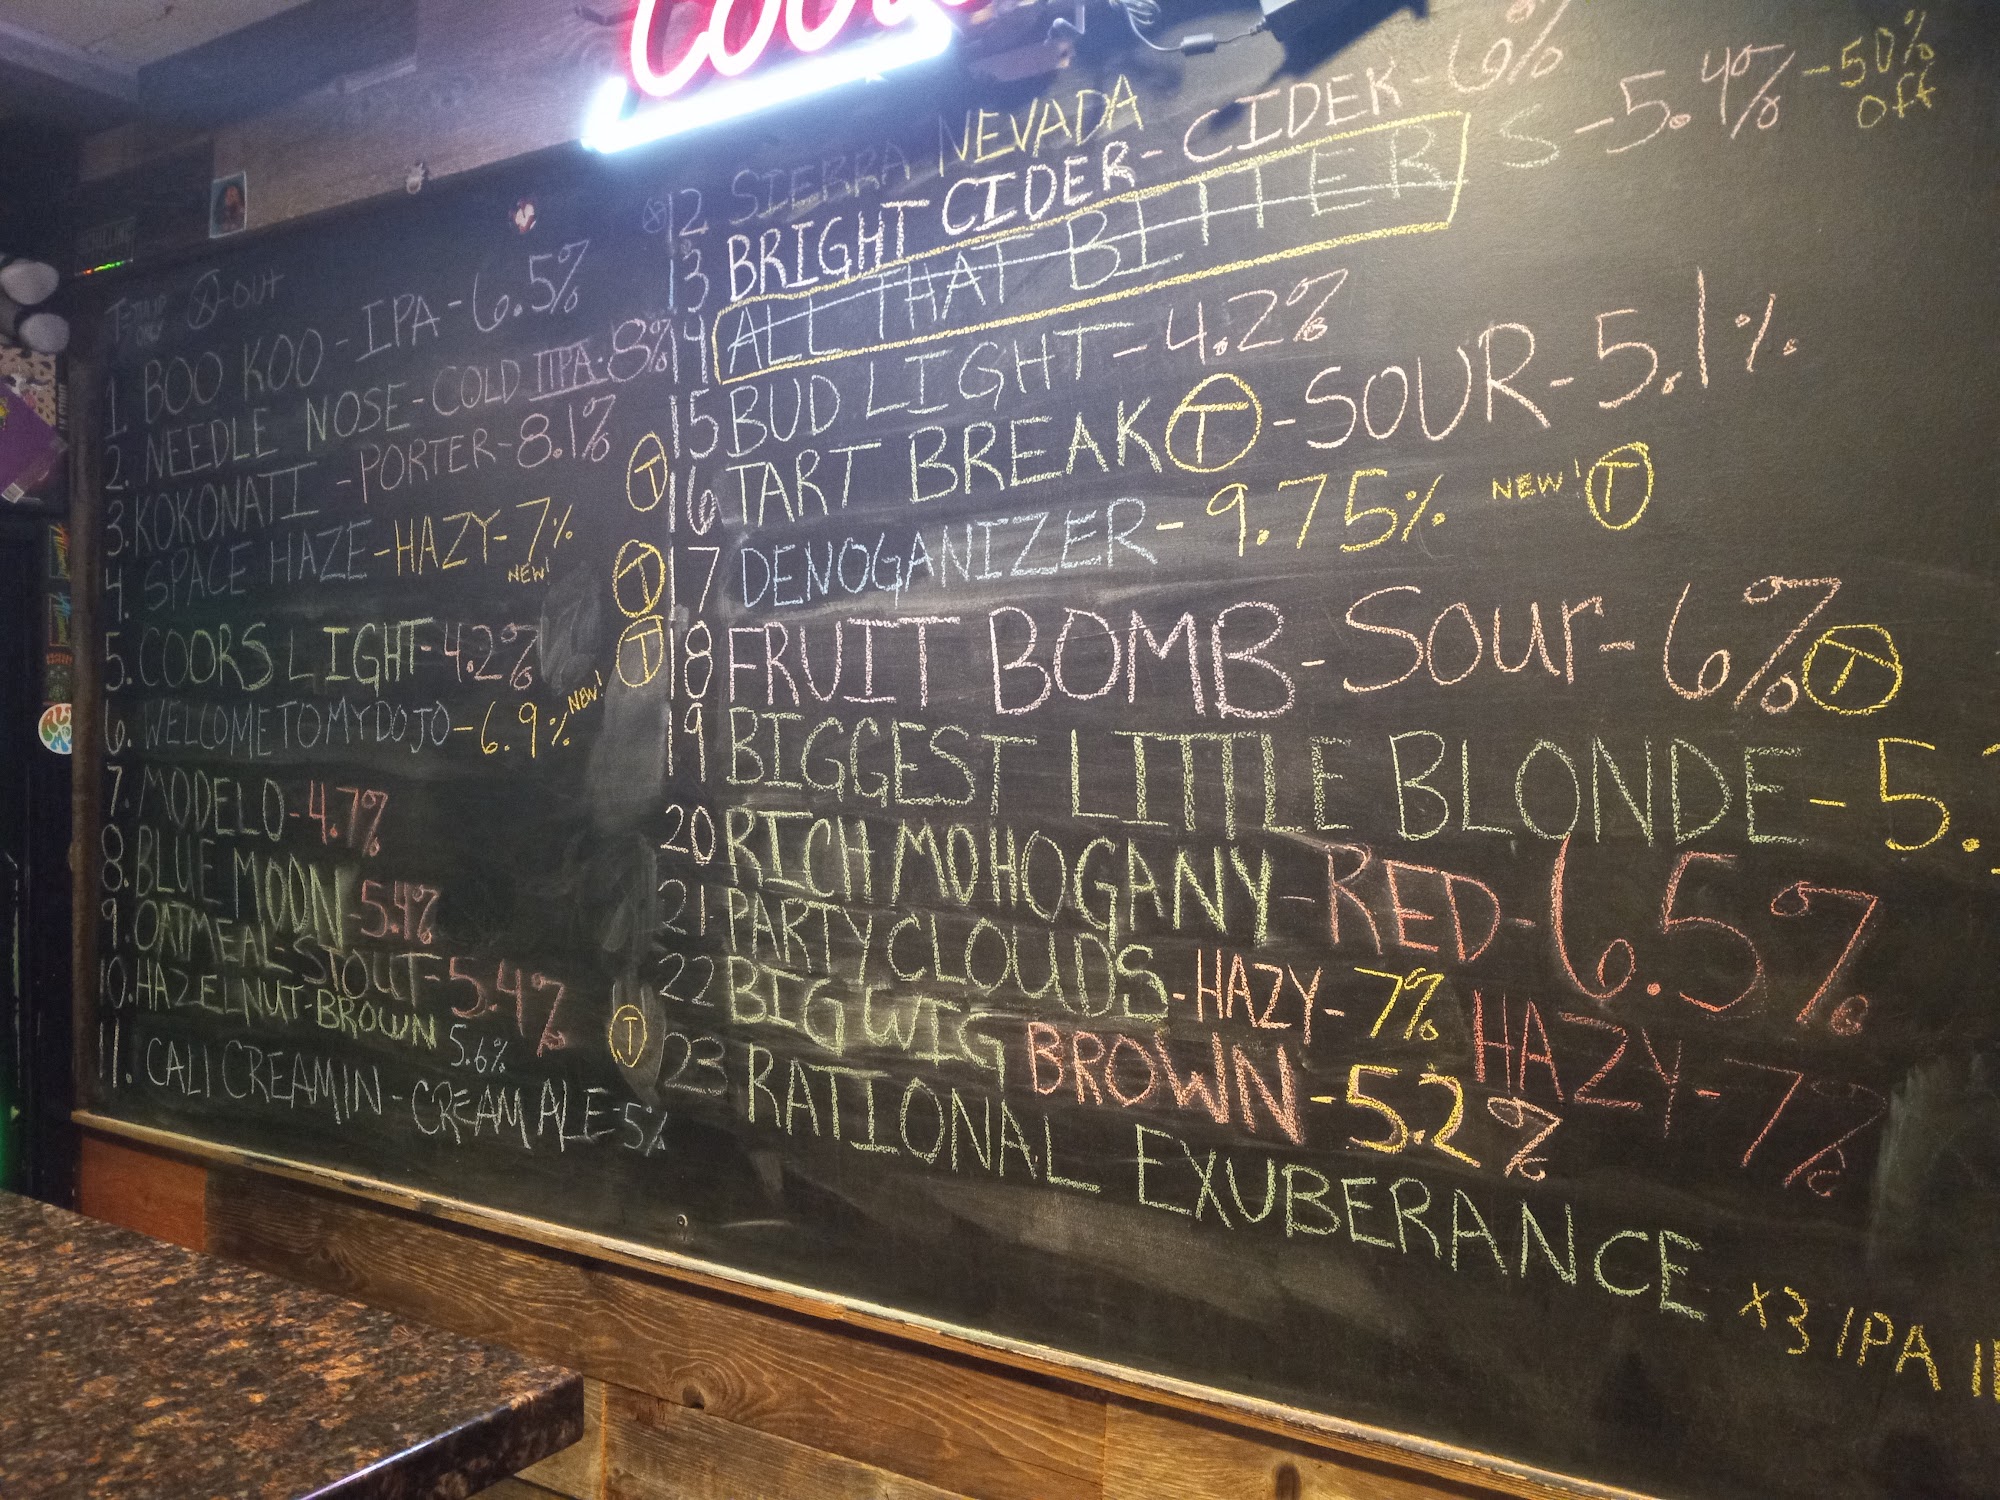 COO
Ⓧ-OUT
1. BOO KOO-IPA-6.5%
2. NEEDLE NOSE-COLD IIPA-8%
3. KOKONATI-PORTER-8.1%
4. SPACE HAZE-HAZY-7% NEW! Ⓣ
5. COORS LIGHT-4.2% Ⓣ
6. WELCOME TO MY DOJO-6.9% NEW! Ⓣ
7. MODELO-4.7%
8. BLUE MOON-5.4%
9. OATMEAL-STOUT-5.4%
10. HAZELNUT-BROWN 5.6%
11. CALI CREAMIN-CREAM ALE-5% Ⓣ
Ⓧ12 SIERRA NEVADA
13 BRIGHT CIDER-CIDER-6%
14 ALL THAT BITTERS-5.4%-50% Off
15 BUD LIGHT-4.2%
16 TART BREAK Ⓣ-SOUR-5.1%
17 DENOGANIZER-9.75% NEW! Ⓣ
18 FRUIT BOMB-Sour-6% Ⓣ
19 BIGGEST LITTLE BLONDE-5.
20 RICH MOHOGANY-RED-6.5%
21 PARTY CLOUDS-HAZY-7%
22 BIG WIG BROWN-5.2%
HAZY-7%
23 RATIONAL EXUBERANCE x3 IPA